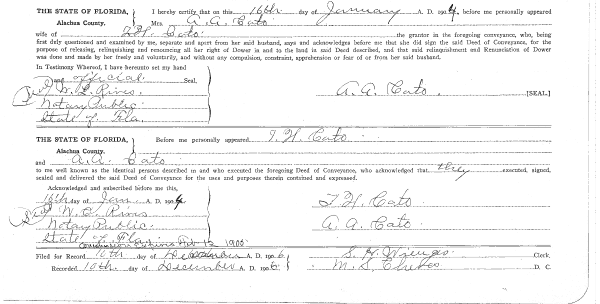 THE STATE OF FLORIDA, I hereby certify that on this 16th day of January A. D. 1904, before me personally appeared
Alachua County. Mrs. A. A. Cato
wife of T. H. Cato the grantor in the foregoing conveyance, who, being
first duly questioned and examined by me, separate and apart from her said husband, says and acknowledges before me that she did sign the said Deed of Conveyance, for the
purpose of releasing, relinquishing and renouncing all her right of Dower in and to the land in said Deed described, and that said relinquishment and Renunciation of Dower
was done and made by her freely and voluntarily, and without any compulsion, constraint, apprehension or fear of or from her said husband.
In Testimony Whereof, I have hereunto set my hand
and official Seal,
Seal W. E. Rives A. A. Cato [SEAL]
Notary Public
State of Fla.
THE STATE OF FLORIDA, Before me personally appeared T. H. Cato
Alachua County.
and A. A. Cato
to me well known as the identical persons described in and who executed the foregoing Deed of Conveyance, who acknowledged that they executed, signed,
sealed and delivered the said Deed of Conveyance for the uses and purposes therein contained and expressed.
Acknowledged and subscribed before me this,
16th day of Jan A. D. 1904 T. H. Cato
Seal W. E. Rives
Notary Public A. A. Cato
State of Fla
Commission Expires 12 1905
Filed for Record 10th day of December A. D. 1906 S. H. Wienges Clerk,
Recorded 19th day of December A. D. 1906 M. S. Cheves D. C.